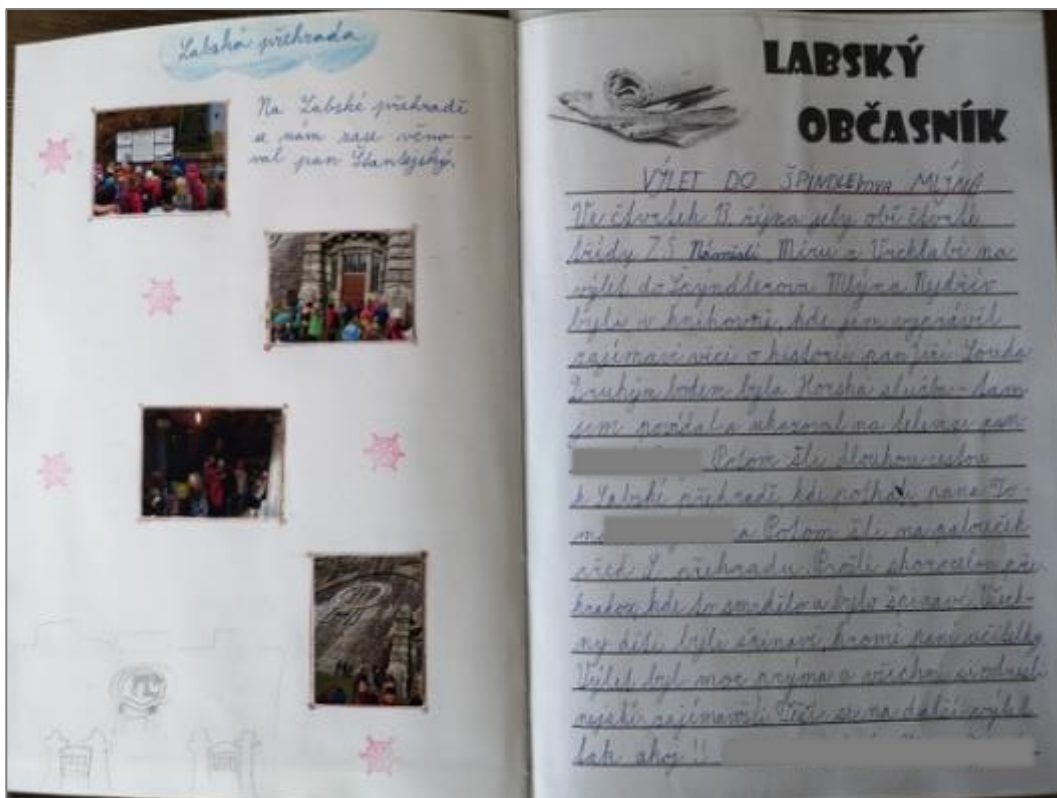 Labská přehrada
Na Labské přehradě
se nám zase věno-
val pan Štantejský.
LABSKÝ
OBČASNÍK
VÝLET DO ŠPINDLEROVA MLÝNA
Ve čtvrtek 13. října jely obě čtvrté
třídy ZŠ Náměstí Míru z Vrchlabí na
výlet do Mlýna Nejdřív
byli v knihovně, kde jim vyprávěl
zajímavé věci o historii pan Jiří Louda
Druhým bodem byla Horská služba - tam
jim povídal a ukazoval na televizi pan
Potom šli dlouhou cestou
k Labské přehradě kde potkali pana To-
Potom šli na palouček
přehradu. Prošli skoro celou pře-
kde to smrdělo a bylo špinavé. Všech-
ny děti byli špinavé, kromě paní učitelky
Výlet byl moc prýma a všichni si odnesli
nějaké zajímavosti. Těší se na další výlet
tak ahoj!!